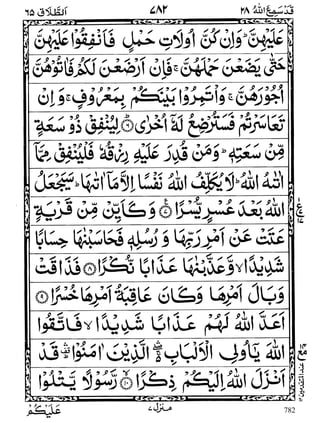 قد سمع الله ٢٨ ٧٨٢ الطلاق ٦٥
عَلَيْهِنَّ ۚ وَإِنْ كُنَّ أُولَاتِ حَمْلٍ فَأَنْفِقُوا عَلَيْهِنَّ
حَتَّىٰ يَضَعْنَ حَمْلَهُنَّ ۚ فَإِنْ أَرْضَعْنَ لَكُمْ فَآتُوهُنَّ
أُجُورَهُنَّ ۚ وَأْتَمِرُوا بَيْنَكُمْ بِمَعْرُوفٍ ۚ وَإِنْ
تَعَاسَرْتُمْ فَسَتُرْضِعُ لَهُ أُخْرَىٰ ۝٦ لِيُنْفِقْ ذُو سَعَةٍ
مِنْ سَعَتِهِ ۖ وَمَنْ قُدِرَ عَلَيْهِ رِزْقُهُ فَلْيُنْفِقْ مِمَّا
آتَاهُ اللَّهُ ۚ لَا يُكَلِّفُ اللَّهُ نَفْسًا إِلَّا مَا آتَاهَا ۚ سَيَجْعَلُ
اللَّهُ بَعْدَ عُسْرٍ يُسْرًا ۝٧ وَكَأَيِّنْ مِنْ قَرْيَةٍ
عَتَتْ عَنْ أَمْرِ رَبِّهَا وَرُسُلِهِ فَحَاسَبْنَاهَا حِسَابًا
شَدِيدًا ۙ وَعَذَّبْنَاهَا عَذَابًا نُكْرًا ۝٨ فَذَاقَتْ
وَبَالَ أَمْرِهَا وَكَانَ عَاقِبَةُ أَمْرِهَا خُسْرًا ۝٩
أَعَدَّ اللَّهُ لَهُمْ عَذَابًا شَدِيدًا ۙ فَاتَّقُوا
اللَّهَ يَا أُولِي الْأَلْبَابِ الَّذِينَ آمَنُوا قَدْ
أَنْزَلَ اللَّهُ إِلَيْكُمْ ذِكْرًا ۝١٠ رَسُولًا يَتْلُوا
عَلَيْكُمْ منزل ٧ 782